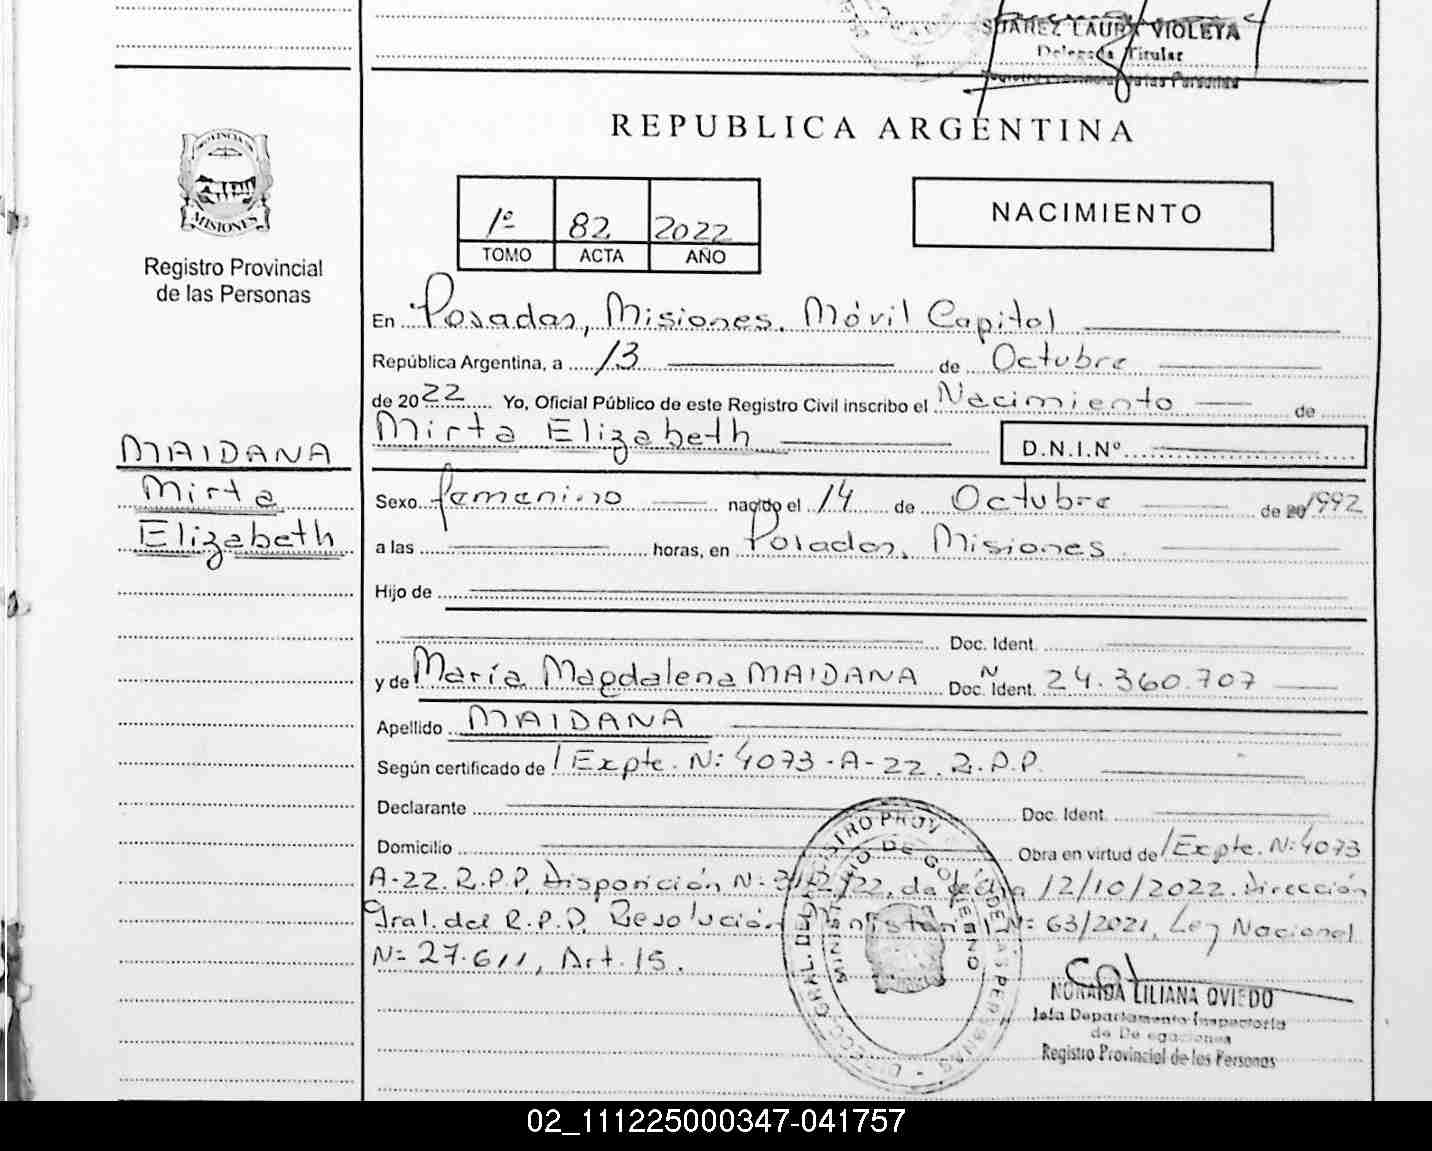 SUAREZ LAURA VIOLETA
Delegada Titular
Registro Provincial de las Personas
REPUBLICA ARGENTINA
PROVINCIA DE
MISIONES
Registro Provincial
de las Personas
1º 82 2022
TOMO ACTA AÑO
NACIMIENTO
En Posadas, Misiones. Móvil Capital
República Argentina, a 13 de Octubre
de 2022 Yo, Oficial Público de este Registro Civil inscribo el Nacimiento de
Mirta Elizabeth D.N.I.Nº
MAIDANA
Mirta
Elizabeth
Sexo femenino nacido el 14 de Octubre de 20 1992
a las horas, en Posadas, Misiones
Hijo de
Doc. Ident.
y de María Magdalena MAIDANA Doc. Ident. N 24.360.707
Apellido MAIDANA
Según certificado de / Expte. N: 4073-A-22. R.P.P.
Declarante Doc. Ident.
Domicilio Obra en virtud de / Expte. N: 4073
A-22. R.P.P. Disposición N= /22, de fecha 12/10/2022. Dirección
Gral. del R.P.P. Resolución Ministerial N= 63/2021, Ley Nacional
N= 27.611, Art. 15.
DIRECC. GRAL. DEL REGISTRO PROV. DE LAS PERSONAS
MINISTERIO DE GOBIERNO
NORAIDA LILIANA OVIEDO
Jefa Departamento Inspectoría
de Delegaciones
Registro Provincial de las Personas
02_111225000347-041757